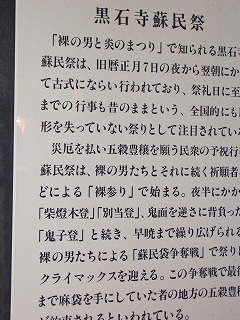 黒石寺蘇民祭
「裸の男と炎のまつり」で知られる黒石
蘇民祭は、旧暦正月7日の夜から翌朝にか
て古式にならい行われており、祭礼日に至
までの行事も昔のままという、全国的にも
形を失っていない祭りとして注目されてい
災厄を払い五穀豊穣を願う民衆の予祝行
蘇民祭は、裸の男たちとそれに続く祈願者
どによる「裸参り」で始まる。夜半にか
「柴燈木登」「別当登」、鬼面を逆さに背負った
「鬼子登」と続き、早暁まで繰り広げられる
裸の男たちによる「蘇民袋争奪戦」で祭り
クライマックスを迎える。この争奪戦で最
まで麻袋を手にしていた者の地方の五穀豊
が約束されるといわれている。